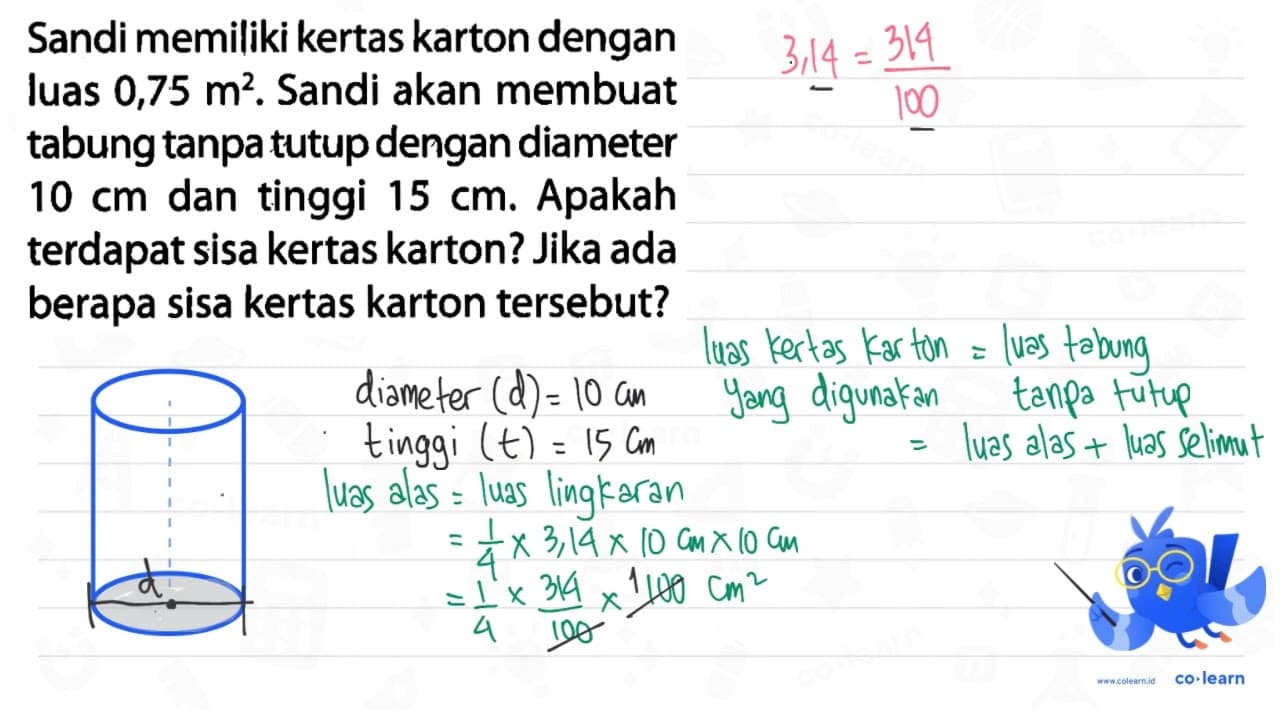 Sandi memiliki kertas karton dengan
luas 0,75 m². Sandi akan membuat
tabung tanpa tutup dengan diameter
10 cm dan tinggi 15 cm. Apakah
terdapat sisa kertas karton? Jika ada
berapa sisa kertas karton tersebut?
3,14 = 314/100
luas kertas karton = luas tabung
yang digunakan tanpa tutup
= luas alas + luas selimut
diameter (d) = 10 cm
tinggi (t) = 15 cm
luas alas = luas lingkaran
= 1/4 × 3,14 × 10 cm × 10 cm
= 1/4 × 314/100 × 1 100 cm²
d
www.colearn.id co·learn